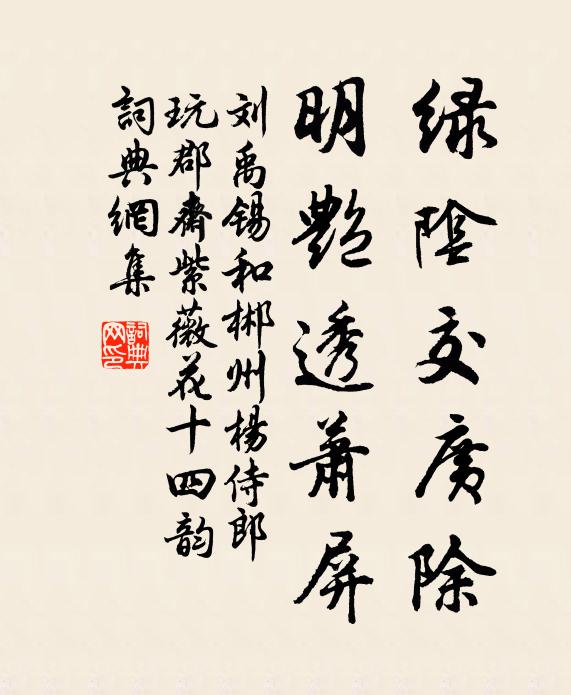 绿阴交廣除
明艷透蕭屏
刘禹锡和郴州楊侍郎
玩郡齋紫薇花十四韵
詞典網集
詞典網印